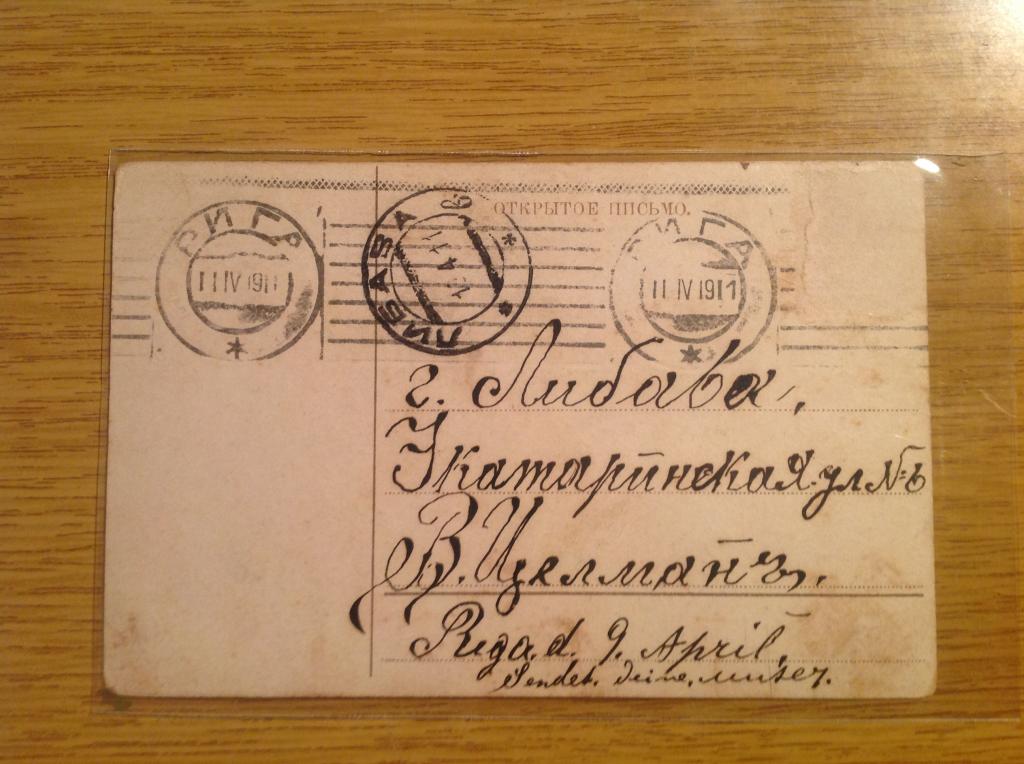 ОТКРЫТОЕ ПИСЬМО.
РИГА
11 IV 1911
ЛИБАВА
РИГА
11 IV 1911
г. Либава,
Екатаринская ул № 6
В. Целманъ.
Riga. d. 9. April,
Sendet. Deine, Mutter.